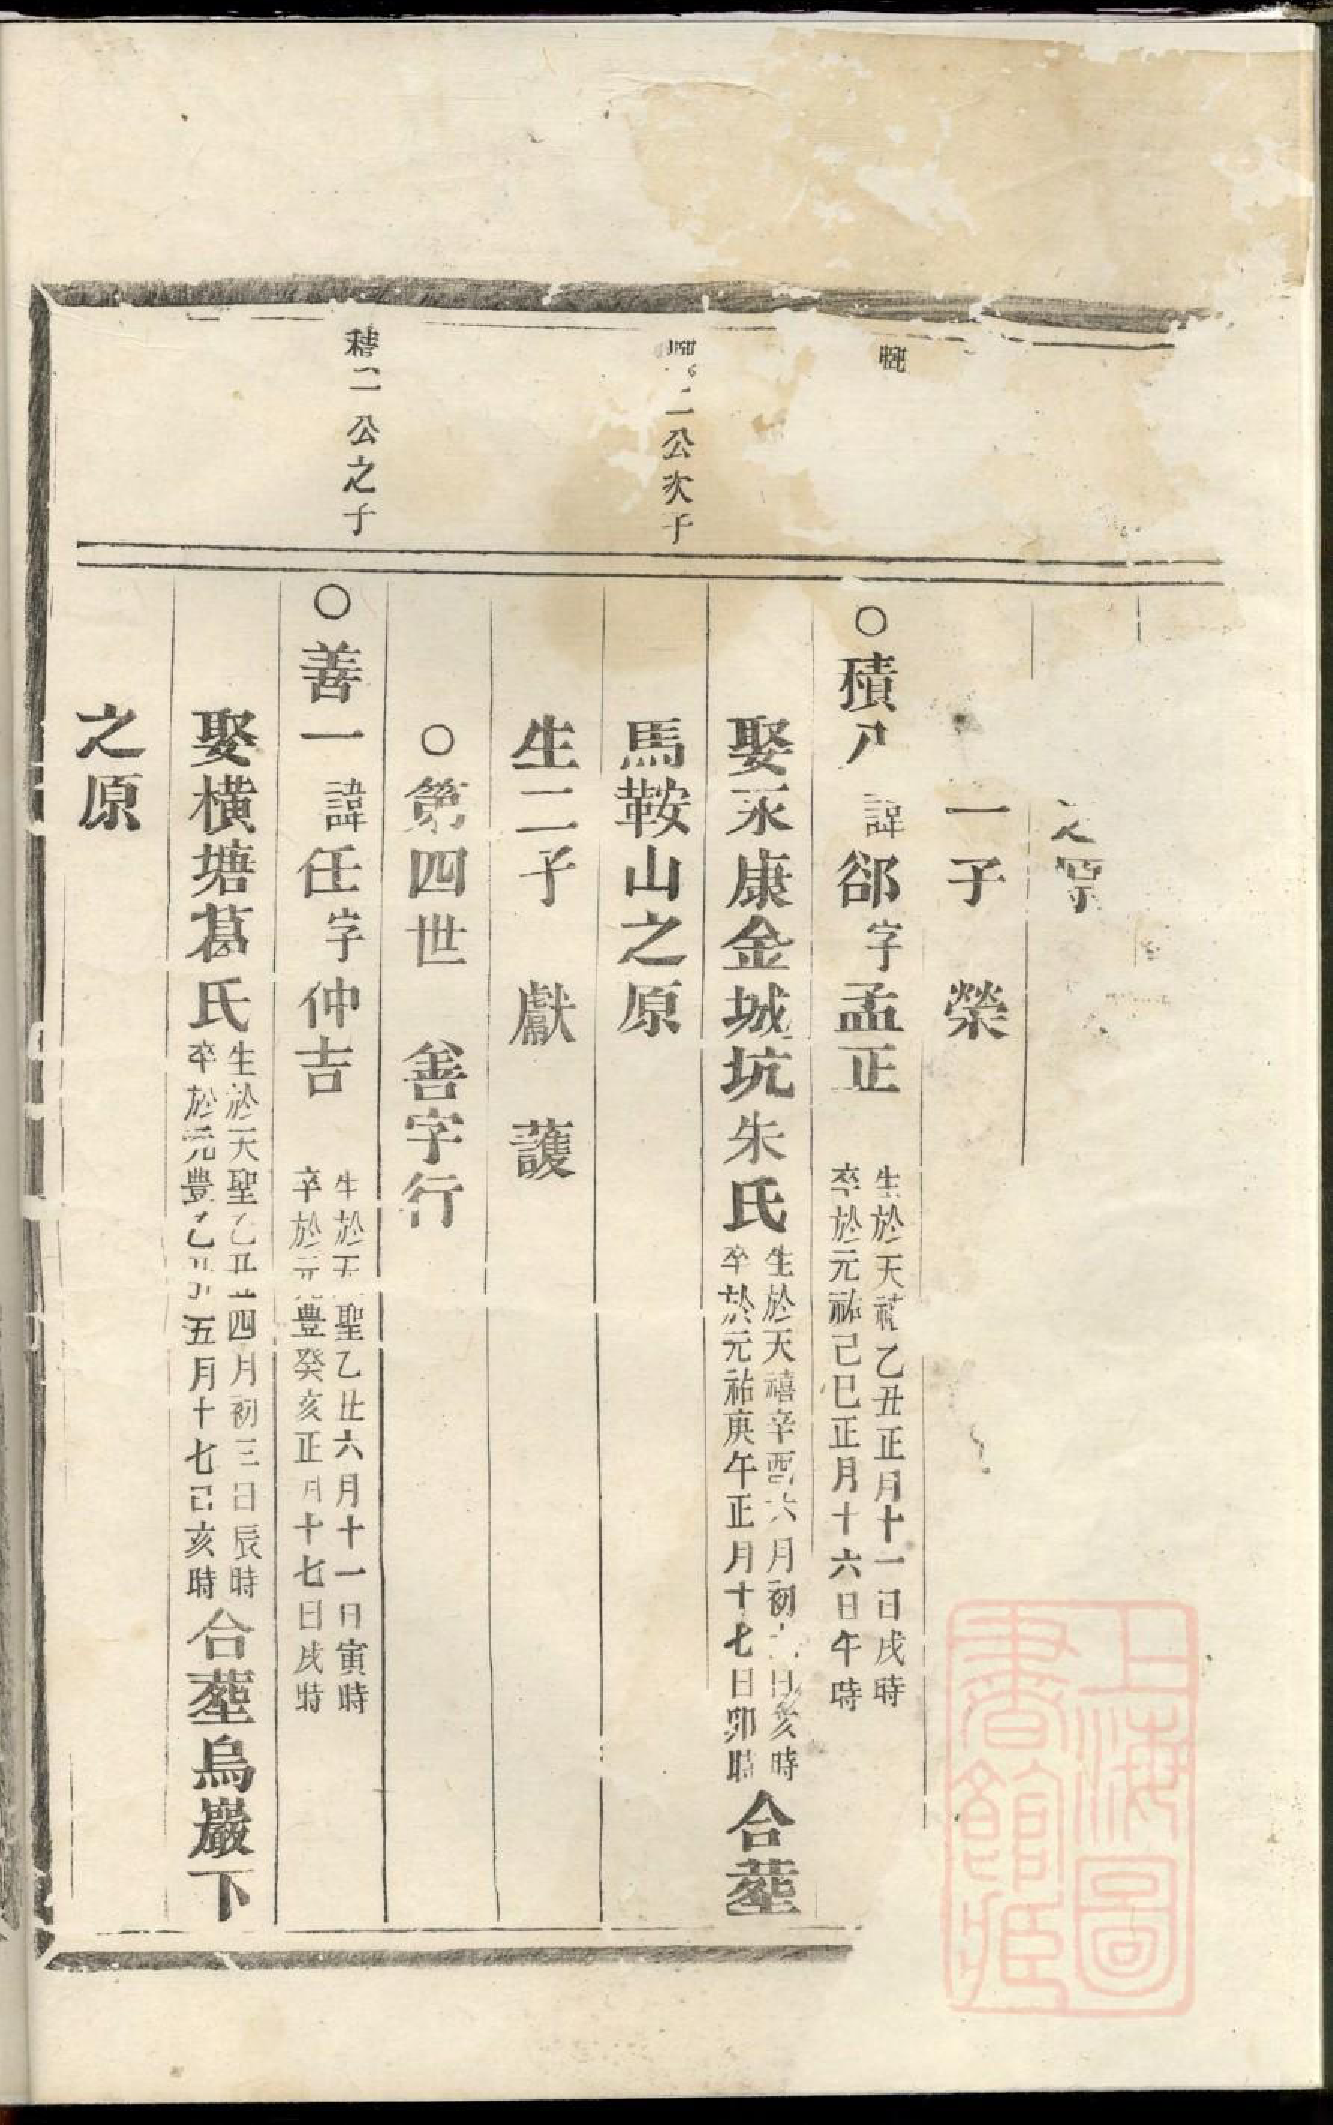 之原
一子 榮
二公次子
○積八 諱郤字孟正 生於天禧乙丑正月十一日戌時 卒於元祐己巳正月十六日午時
娶永康金城坑朱氏 生於天禧辛酉六月初 日亥時 卒於元祐庚午正月十七日卯時 合塟
馬鞍山之原
生二子 獻 護
○第四世 善字行
積一公之子
○善一 諱任字仲吉 生於天聖乙丑六月十一日寅時 卒於元豊癸亥正月十七日戌時
娶橫塘葛氏 生於天聖乙丑四月初三日辰時 卒於元豊乙丑五月十七己亥時 合塟烏巖下
之原
上海圖書館藏